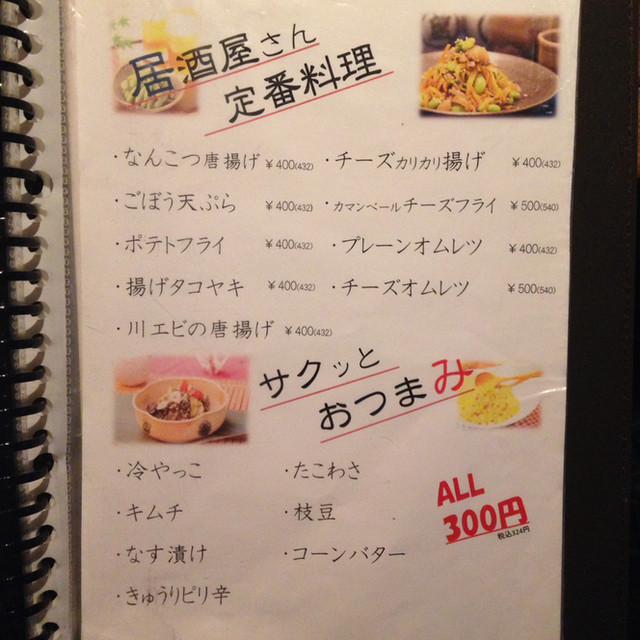 居酒屋さん
定番料理
・なんこつ唐揚げ ¥400(432)
・ごぼう天ぷら ¥400(432)
・ポテトフライ ¥400(432)
・揚げタコヤキ ¥400(432)
・川エビの唐揚げ ¥400(432)
・チーズカリカリ揚げ ¥400(432)
・カマンベールチーズフライ ¥500(540)
・プレーンオムレツ ¥400(432)
・チーズオムレツ ¥500(540)
サクッと
おつまみ
・冷やっこ
・キムチ
・なす漬け
・きゅうりピリ辛
・たこわさ
・枝豆
・コーンバター
ALL
300円
税込324円